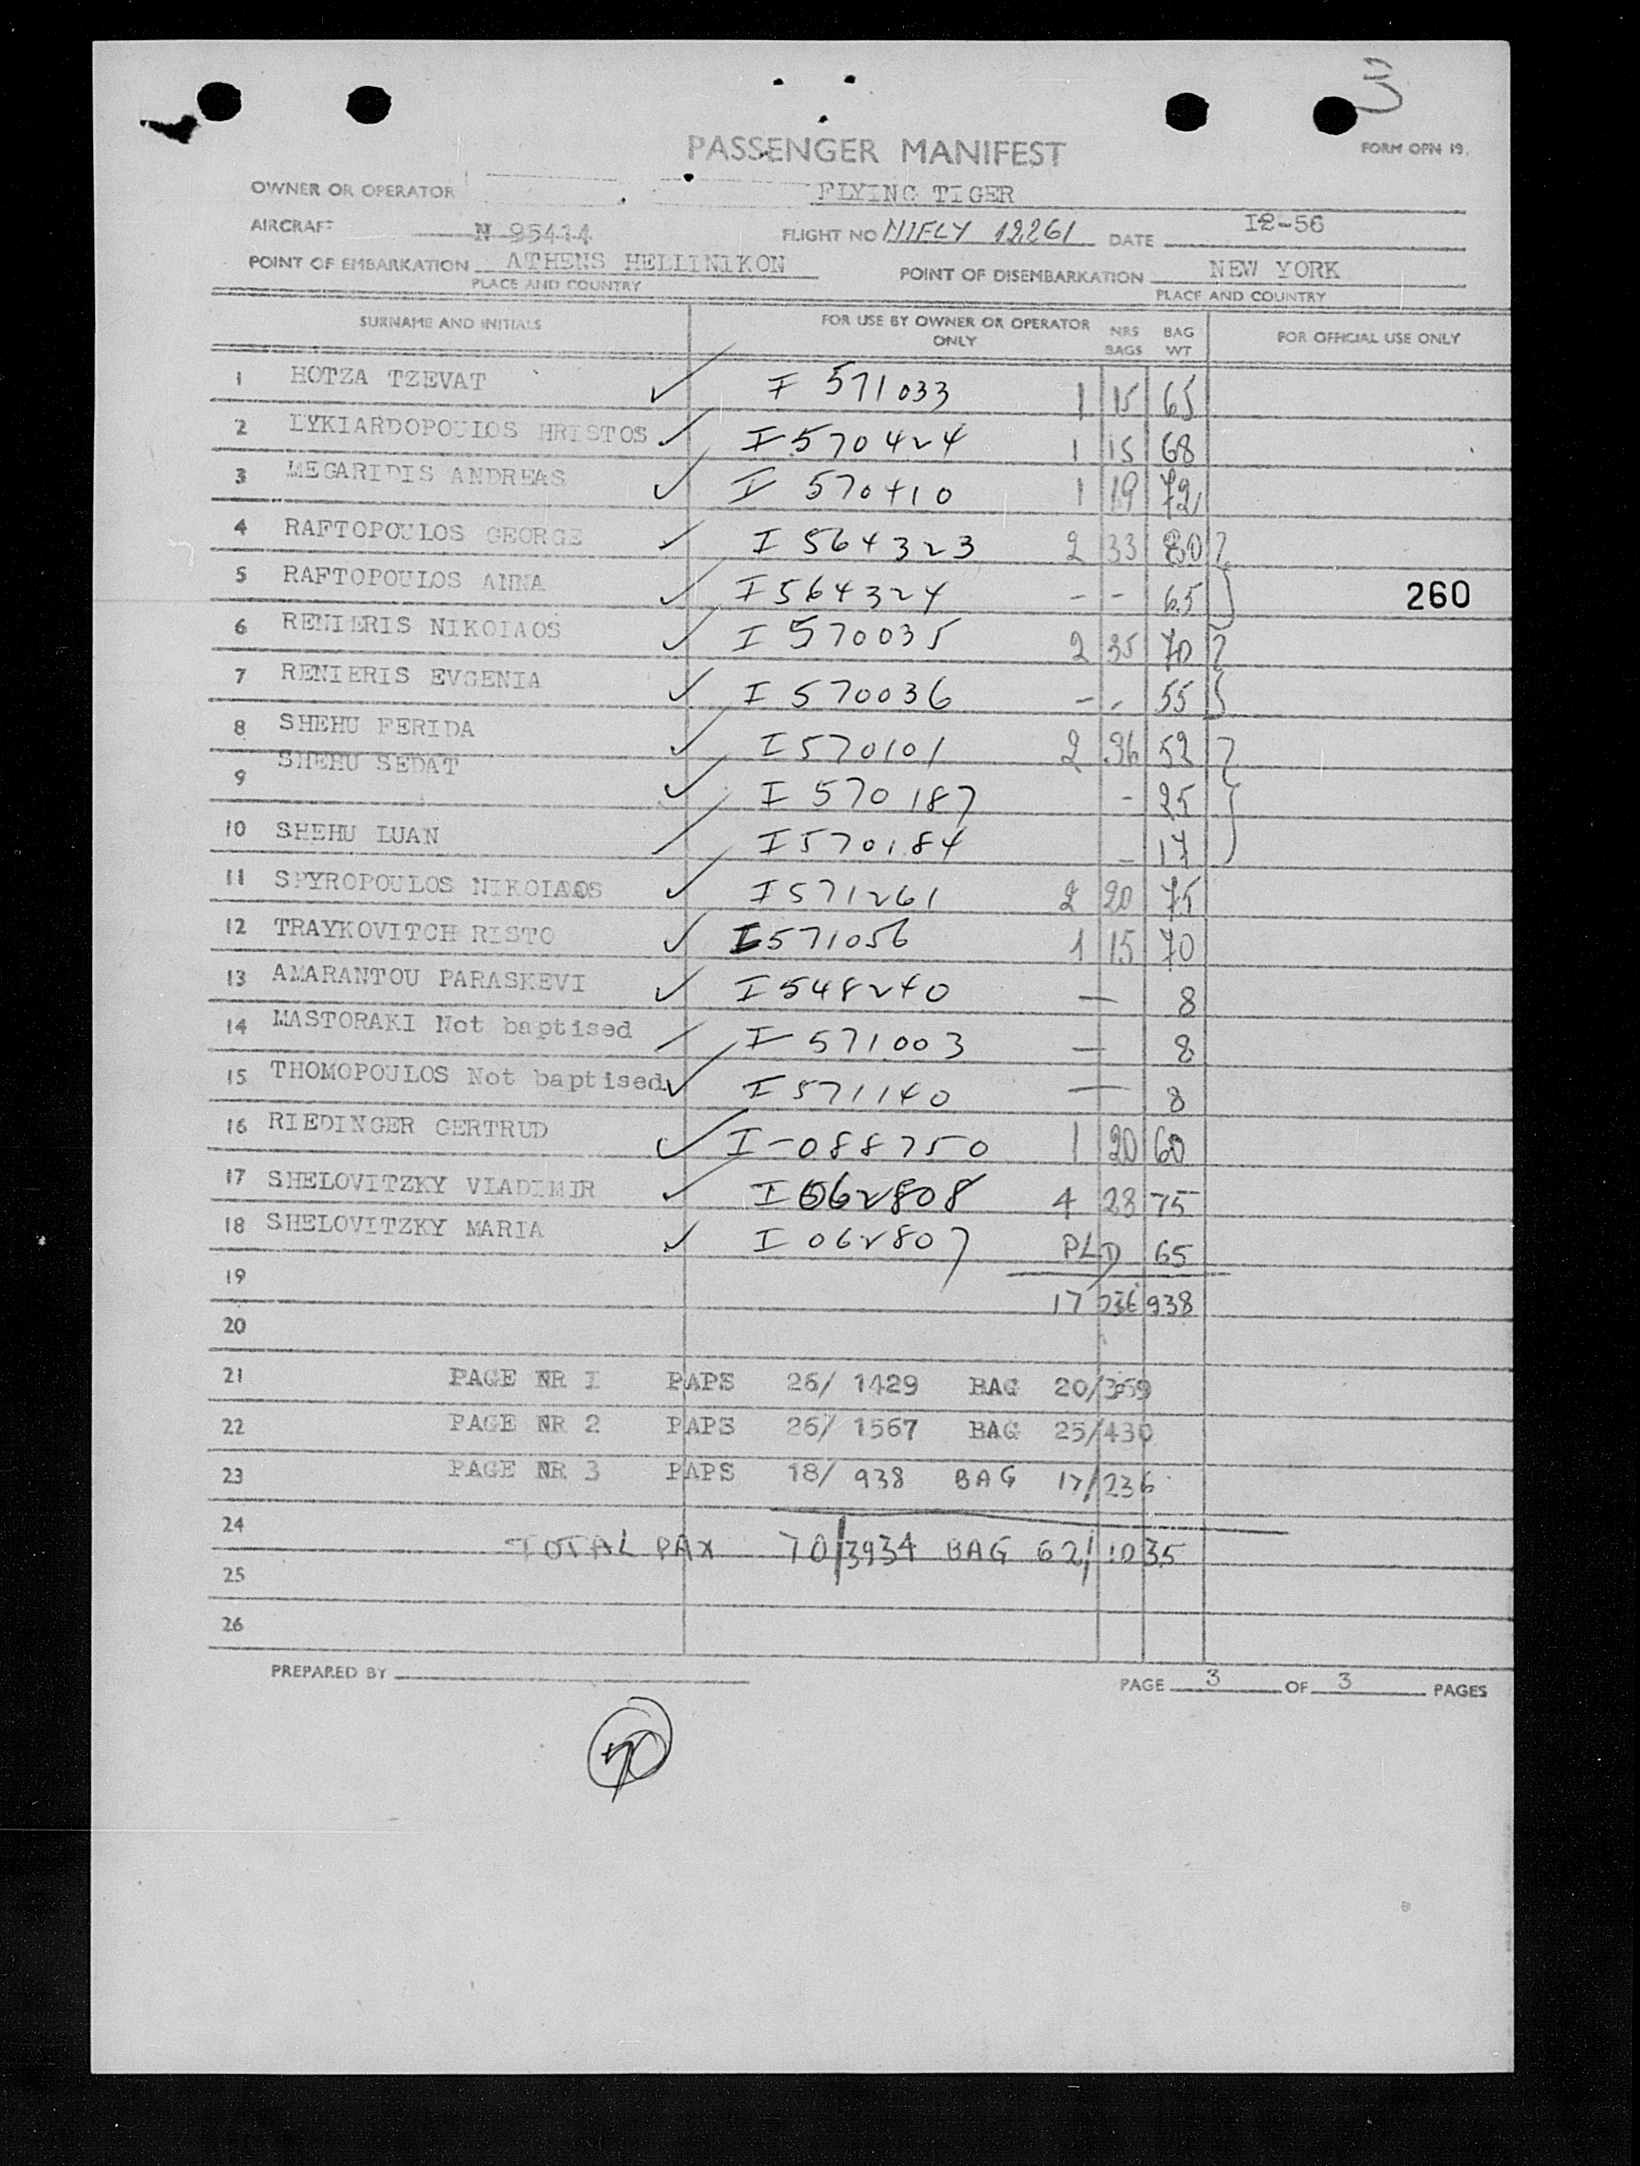 3
PASSENGER MANIFEST
FORM OPN 19.
OWNER OR OPERATOR FLYING TIGER
AIRCRAFT N 95414 FLIGHT NO 12261 DATE I2-56
POINT OF EMBARKATION ATHENS HELLINIKON POINT OF DISEMBARKATION NEW YORK
PLACE AND COUNTRY PLACE AND COUNTRY
SURNAME AND INITIALS FOR USE BY OWNER OR OPERATOR ONLY NRS BAGS BAG WT FOR OFFICIAL USE ONLY
1 HOTZA TZEVAT ✓ I 571033 1 15 65
2 LYKIARDOPOULOS HRISTOS ✓ I 570424 1 15 68
3 MEGARIDIS ANDREAS ✓ I 570410 1 19 72
4 RAFTOPOULOS GEORGE ✓ I 564323 2 33 80
5 RAFTOPOULOS ANNA ✓ I 564324 - - 65 260
6 RENIERIS NIKOLAOS ✓ I 570035 2 35 70
7 RENIERIS EVGENIA ✓ I 570036 - - 55
8 SHEHU FERIDA ✓ I 570101 2 36 52
9 SHEHU SEDAT ✓ I 570187 - 25
10 SHEHU LUAN I 570184 - 17
11 SPYROPOULOS NIKOLAOS ✓ I 571261 2 20 75
12 TRAYKOVITCH RISTO ✓ I 571056 1 15 70
13 AMARANTOU PARASKEVI ✓ I 548240 — 8
14 MASTORAKI Not baptised I 571003 — 8
15 THOMOPOULOS Not baptised ✓ I 571140 — 8
16 RIEDINGER GERTRUD ✓ I-088750 1 20 60
17 SHELOVITZKY VLADIMIR ✓ I 062808 4 28 75
18 SHELOVITZKY MARIA ✓ I 062807 PLD 65
19 17 236 938
20
21 PAGE NR I PAPS 26/ 1429 BAG 20/369
22 PAGE NR 2 PAPS 26/ 1567 BAG 25/430
23 PAGE NR 3 PAPS 18/ 938 BAG 17/236
24 TOTAL PAX 70/3934 BAG 62/1035
25
26
PREPARED BY PAGE 3 OF 3 PAGES
70